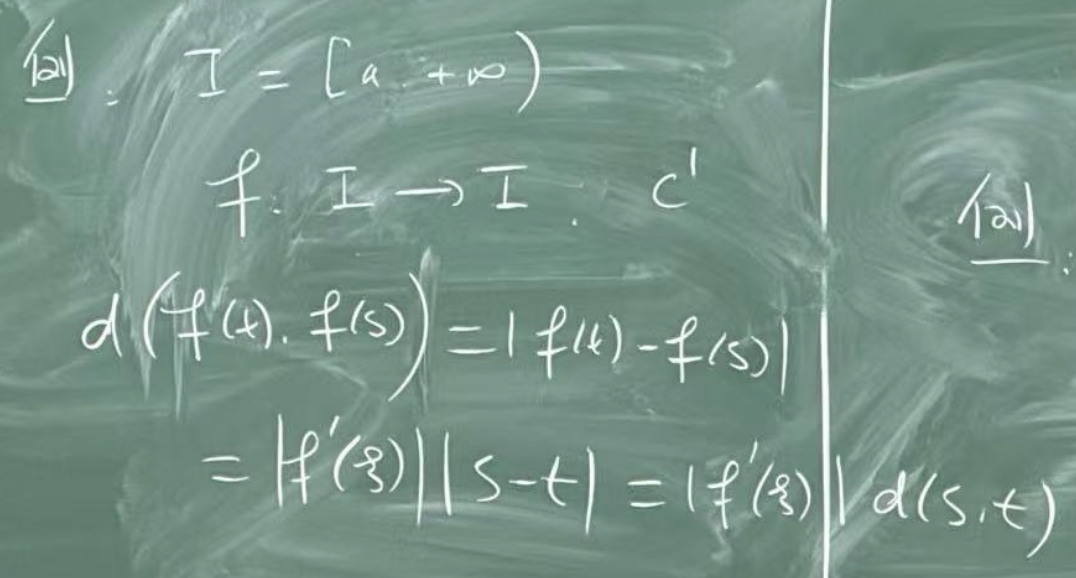 例: I = [a, +∞)
f: I → I, C'
d(f(t), f(s)) = |f(t) - f(s)|
= |f'(ξ)||s-t| = |f'(ξ)| d(s,t)
例: